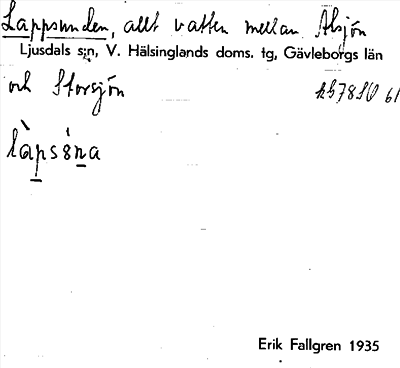 Lappsunden, allt vatten mellan Alsjön
Ljusdals s:n, V. Hälsinglands doms. tg, Gävleborgs län
och Storsjön
Erik Fallgren 1935